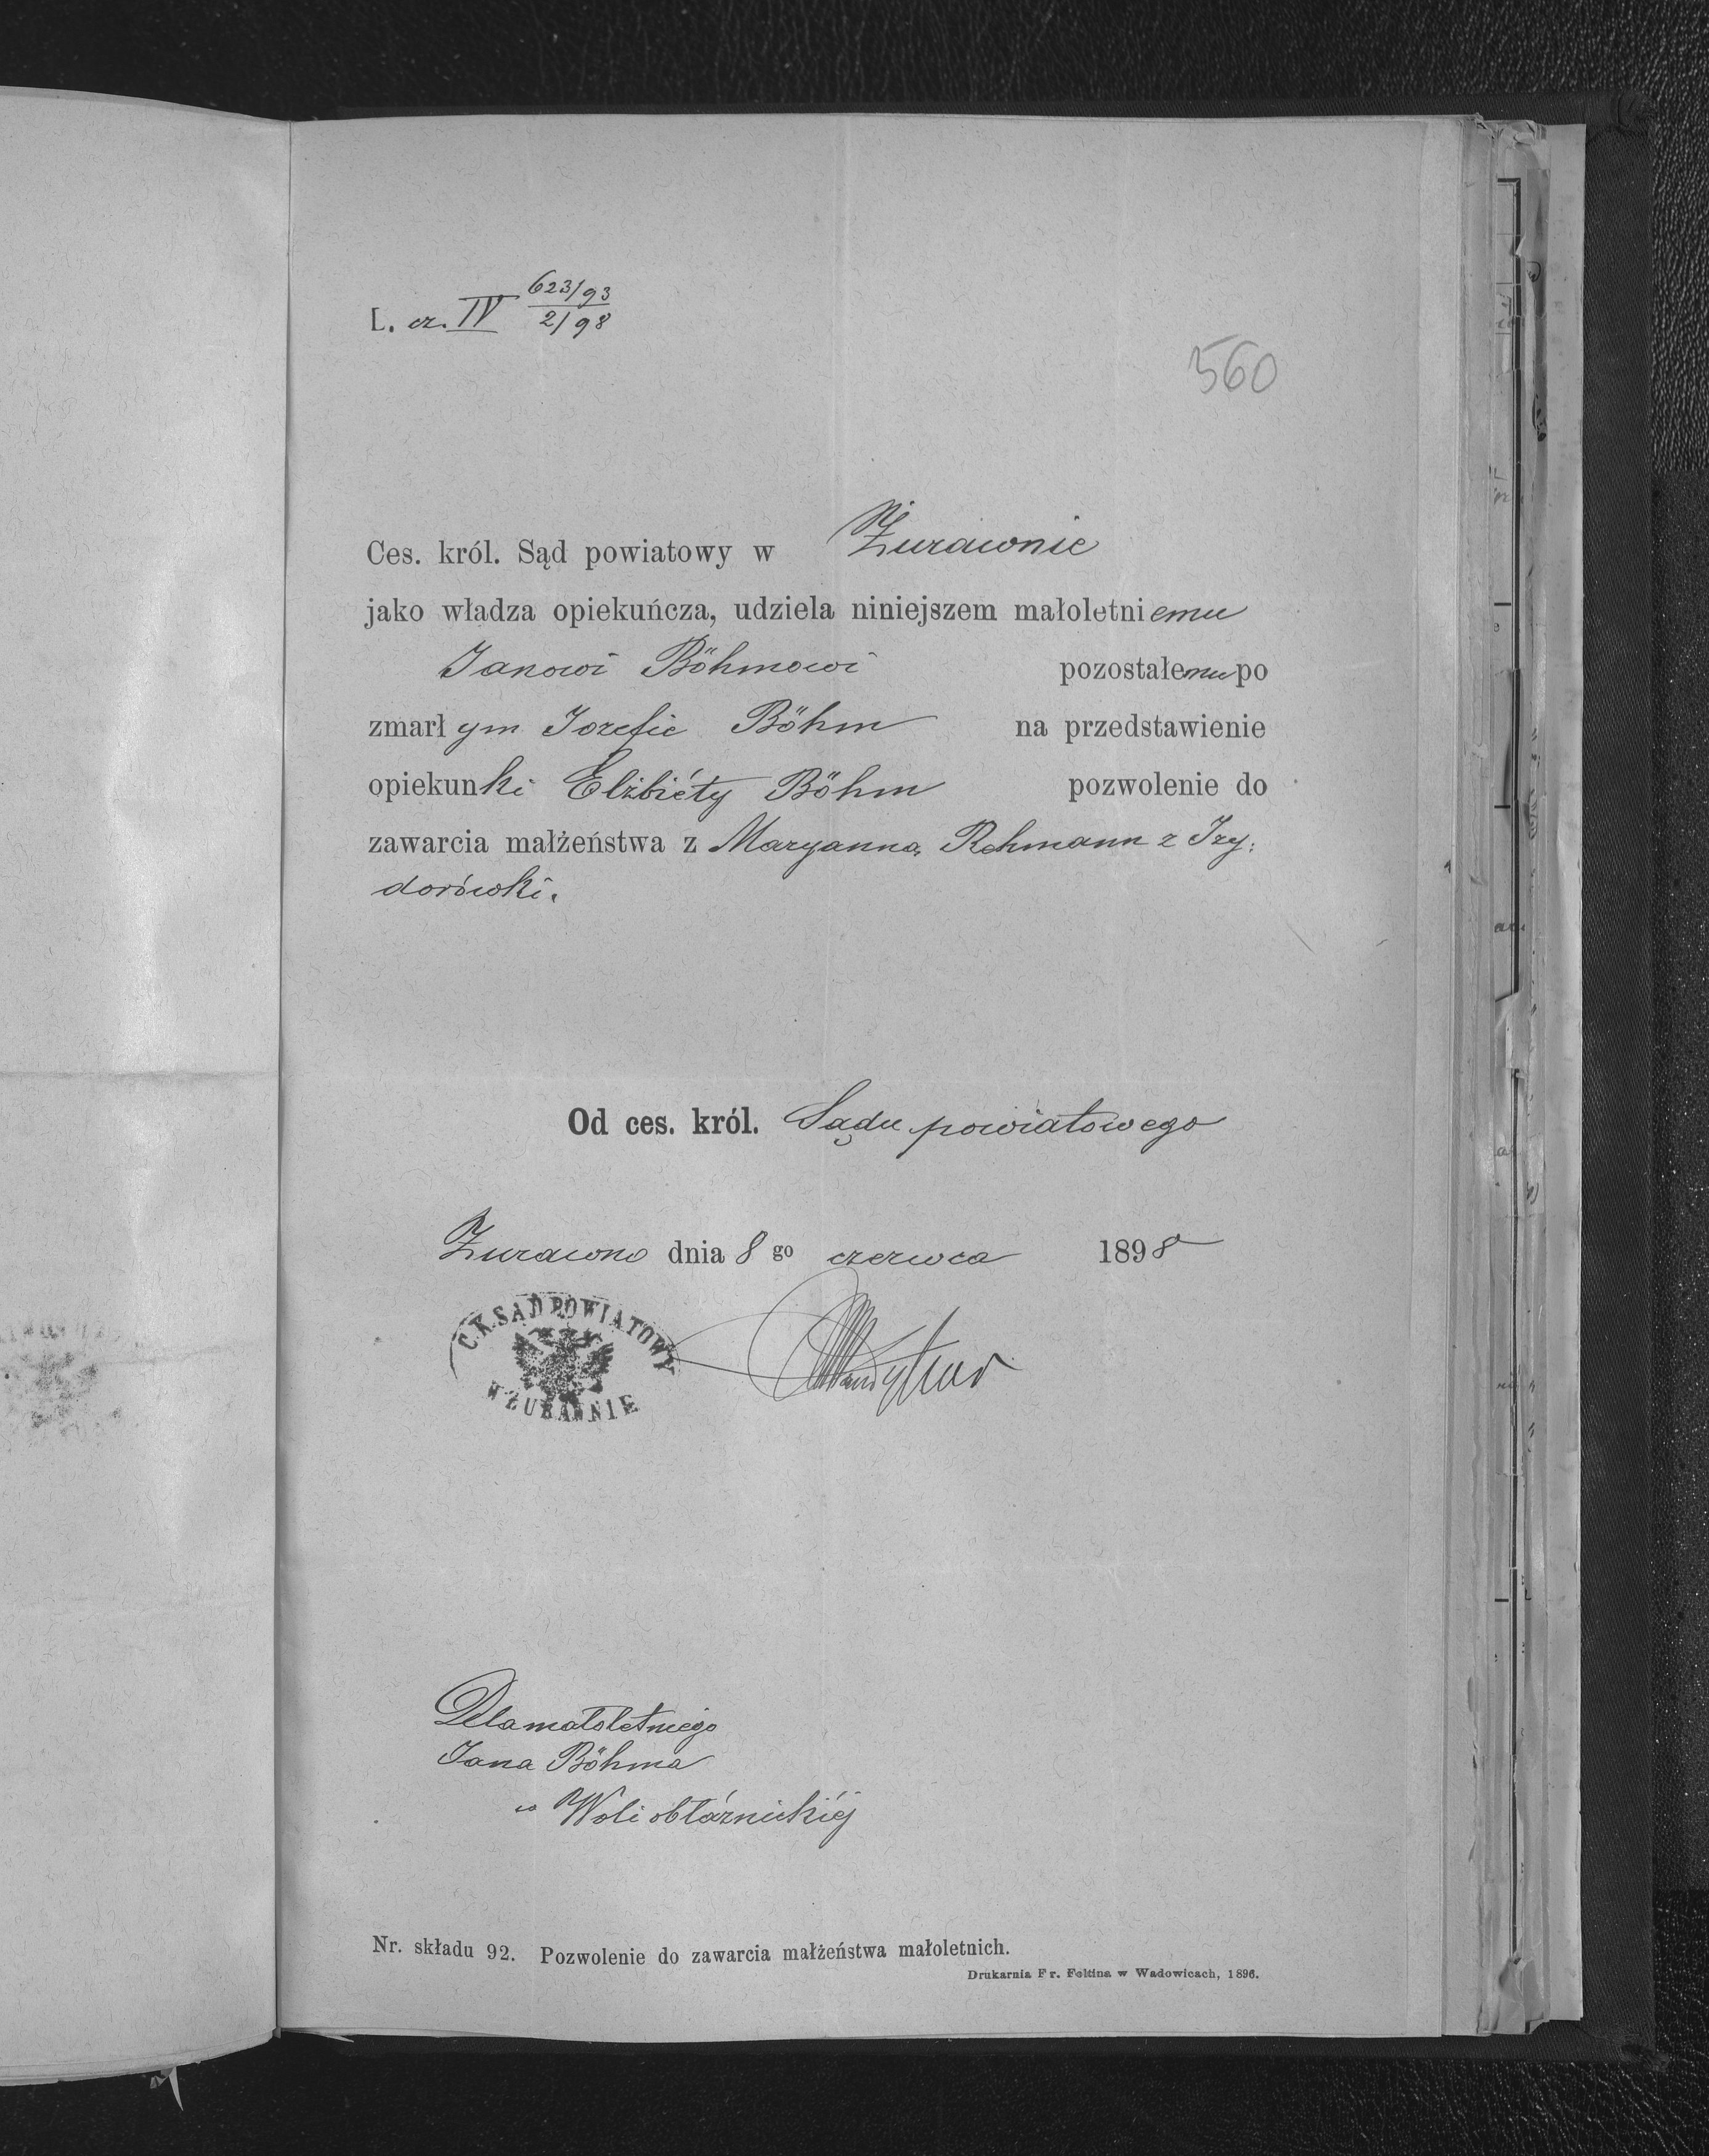 L. cz. IV 623/93
2/98
560
Ces. król. Sąd powiatowy w Żurawnie
jako władza opiekuńcza, udziela niniejszem małoletniemu
Janowi Böhmowi pozostałemu po
zmarłym Jozefie Böhm na przedstawienie
opiekunki Elżbiéty Böhm pozwolenie do
zawarcia małżeństwa z Maryanną Rehmann z Izy:
dorówki.
Od ces. król. Sądu powiatowego
Żurawno dnia 8 go czerwca 1898
C.K. SĄD POWIATOWY
W ŻURAWNIE
Dla małoletniego
Jana Böhma
w Woli obłaźnickiéj
Nr. składu 92. Pozwolenie do zawarcia małżeństwa małoletnich.
Drukarnia Fr. Foltina w Wadowicach, 1896.